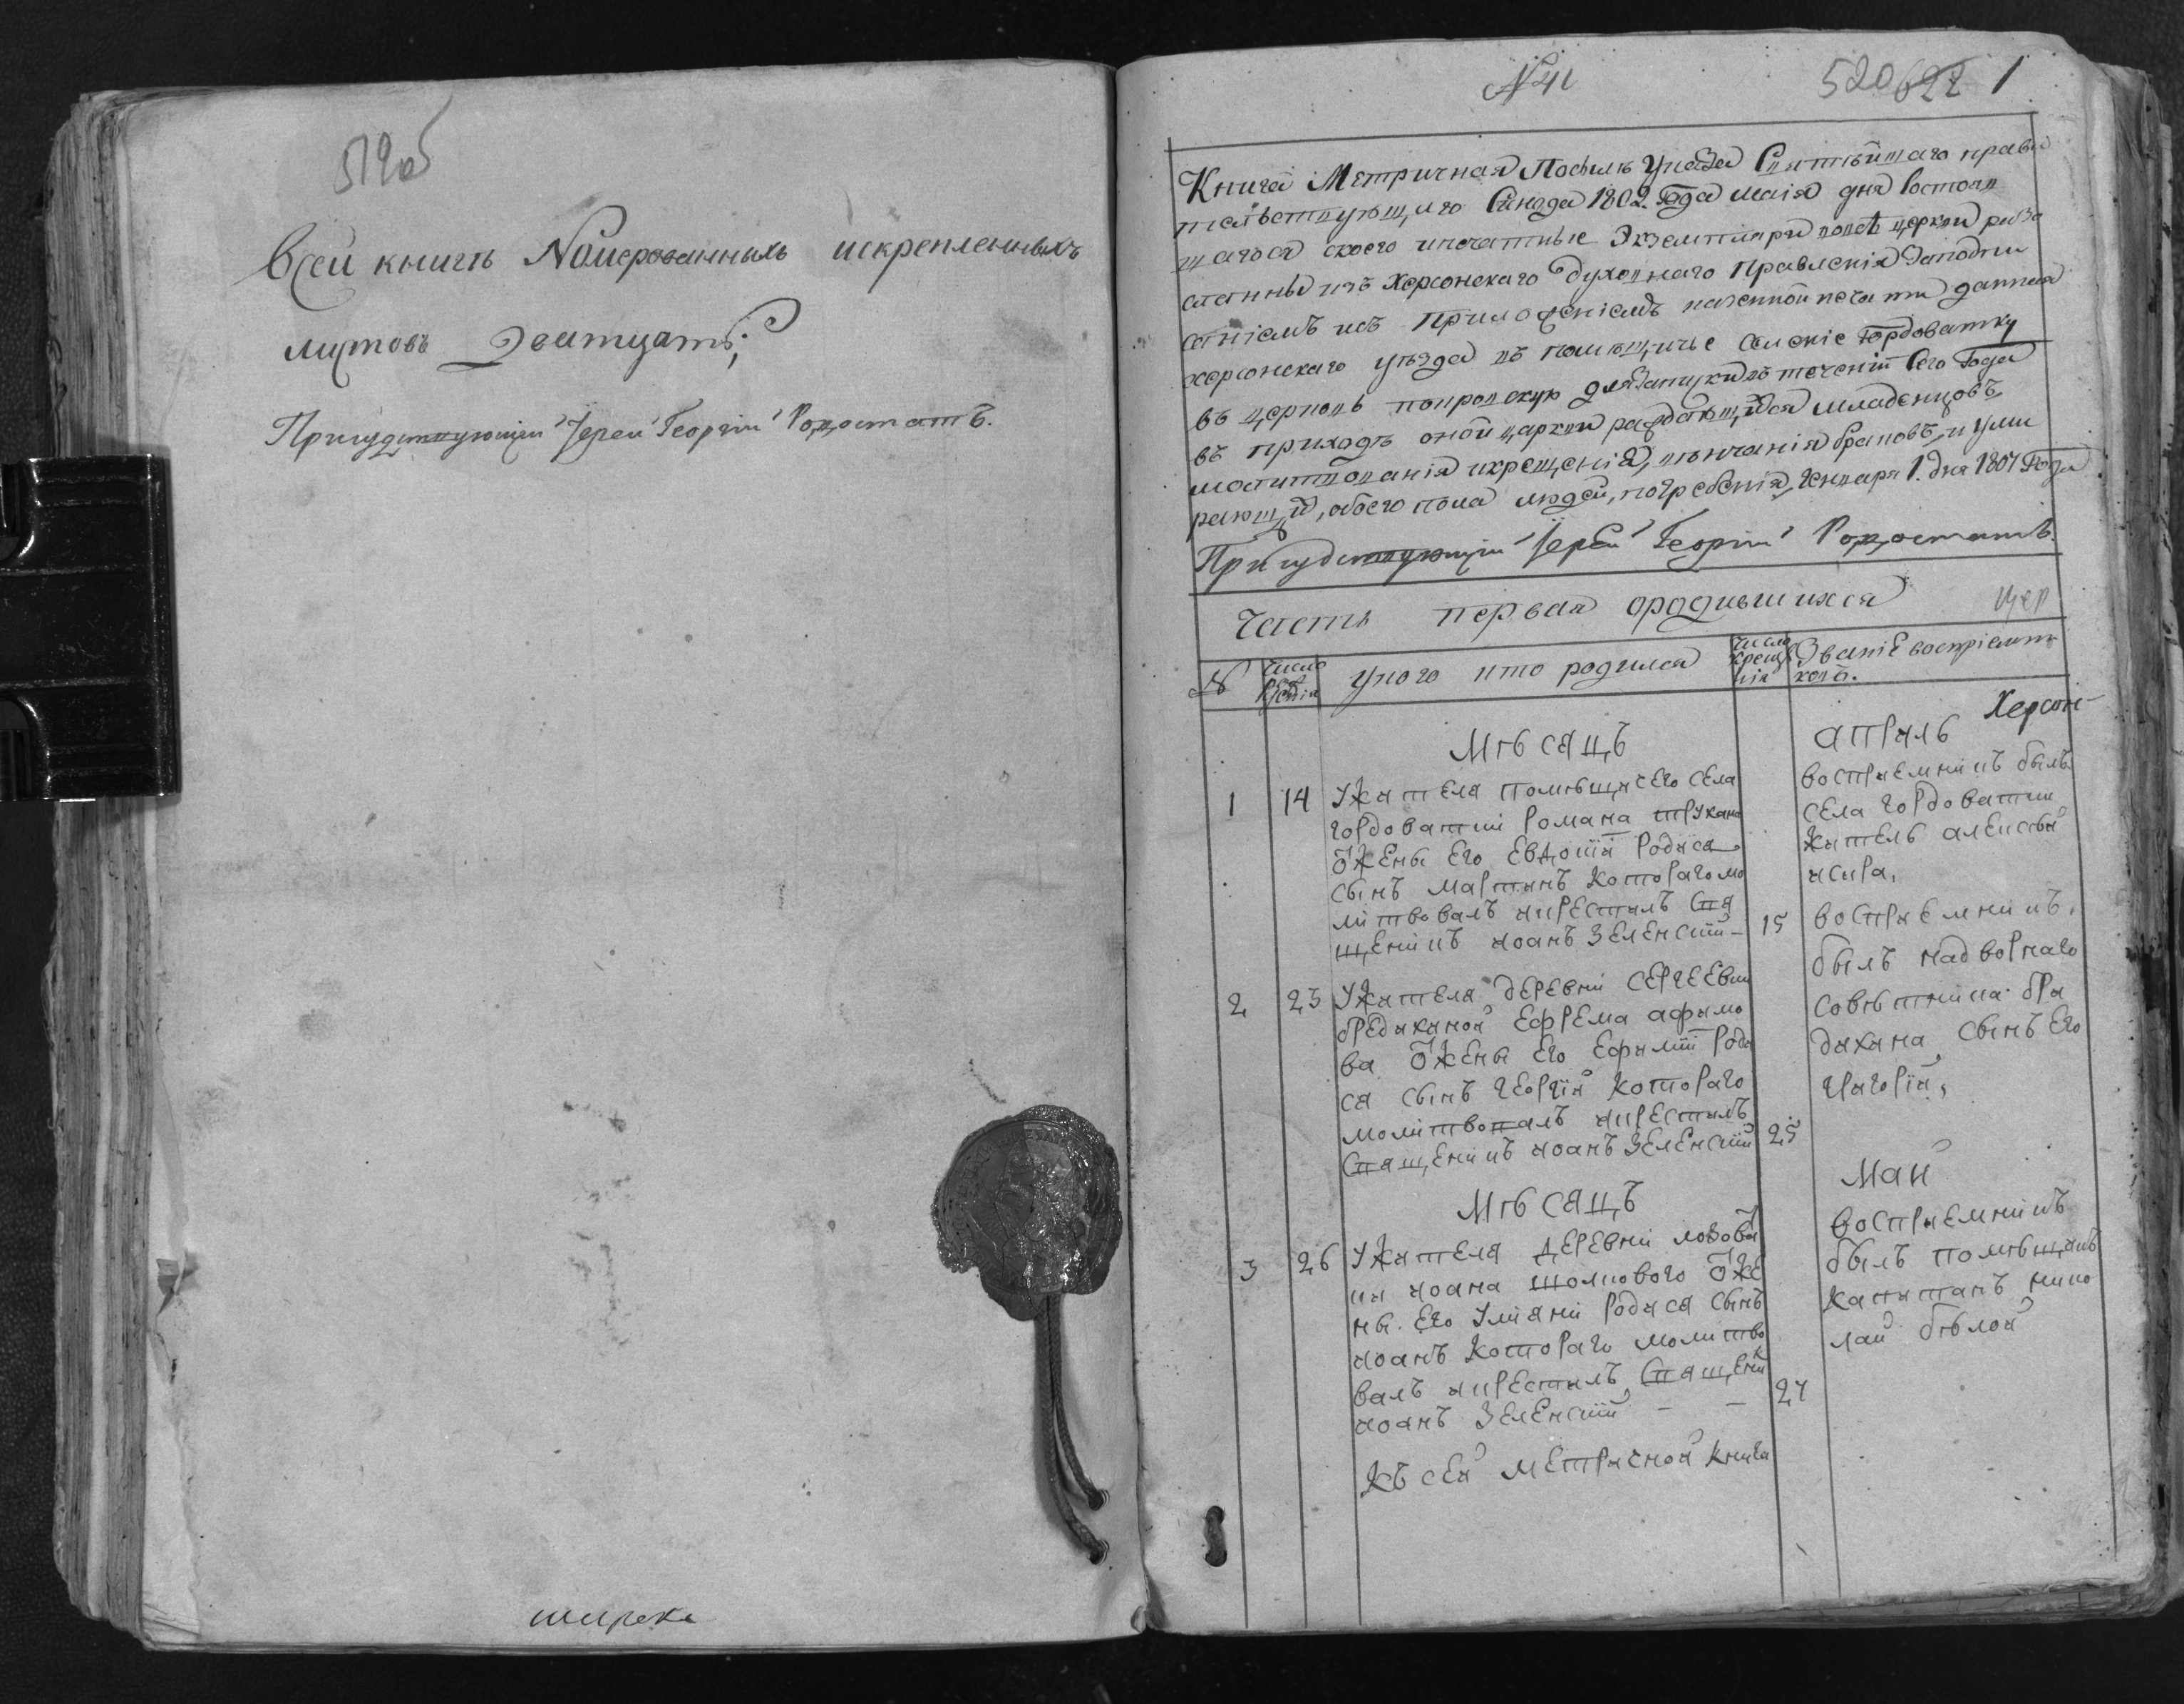 519об
Всей книгѣ Номерованныхъ искрепленныхъ
листовъ Дватцать;
Присудствующій Іерей Георгій
широке
№ 41
520 622 1
Книга Метричная Посилѣ Указа Святѣйшаго прави
тельствующиго Синода 1802. Года маія дня Состояв
щагося скоего ипечатные Экземпляри повсѣ церкви разо
сланны изъ Херсонскаго духовнаго Правленія Заподпи
саніемъ исъ Приложеніемъ казенной печати данная
херсонскаго уѣзда въ помѣщичье селеніе Гордоватку
въ церковь покровскую для Записки въ теченіи Сего Года
въ приходѣ оной церкви раждающихся младенцовъ
молитвованія икрещенія, вѣнчанія браковъ, и уми
рающих, обоего пола людей, погребенія, Генваря 1. дня 1807 Года
Присудствующій Іерей Георгій
Часть первая ородившихся
Чер
№ Число рожденія Укого кто родился Число креще нія Званіе воспріемни ковъ.
Херсон-
Мѣсяцъ Априль
1 14 Ужителя помѣщичего села
гордоватки Романа трукана
ѿжены Его Евдокіи Родился
сынъ Мартинъ Котораго мо
литвовалъ икрестилъ Свя
щеникъ иоанъ Зеленскій - 15
воспріемникъ былъ
села гордоватки
житель алексѣй
воспріемникъ
былъ надворнаго
совѣтника бри
дихина сынъ Его
григорій,
2 23 Ужителя деревни Сергеевки
бредихиной Ефрема афимо
ва ѿжены Его Ефиміи Роди
ся сынъ георгій Котораго
молитвовалъ икрестилъ
Священикъ иоанъ Зеленскій 25
Мѣсяцъ Май
3 26 Ужителя деревни лозова
ки иоана шолкового ѿже
ны Его Уліяни Родися сынъ
иоанъ Котораго молитво
валъ икрестилъ Священик
иоанъ Зеленскій - - 27
воспріемникъ
былъ помѣщикъ
капитанъ нико
лай бѣлой
Къ сей метричной книги